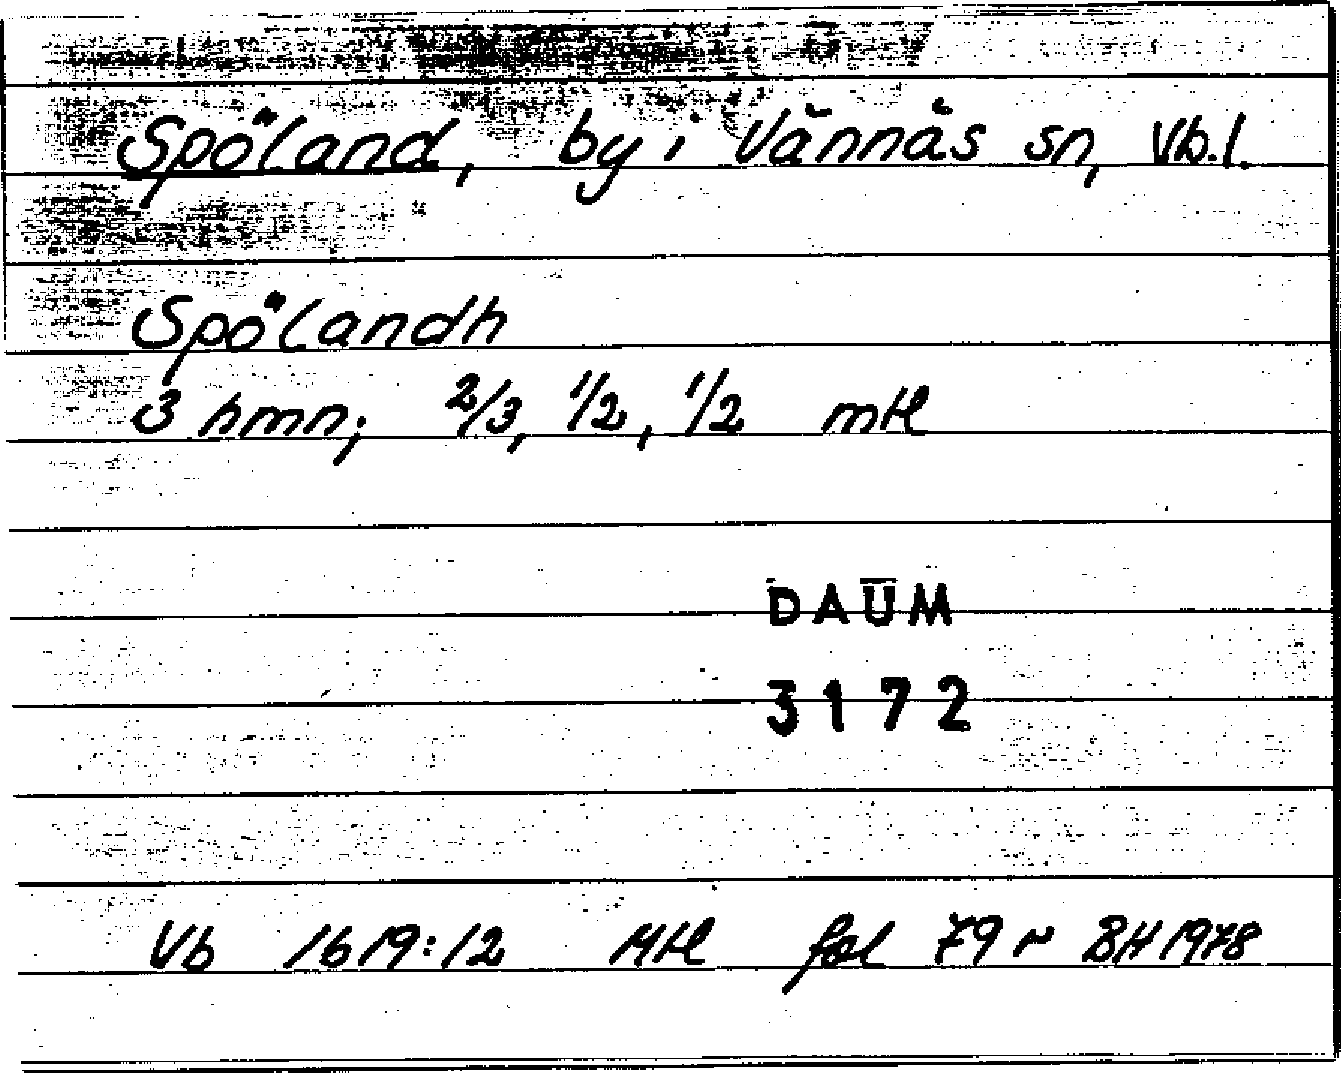 Spöland, by i Vännäs sn, Vb.l.
Spölandh
3 hmn; 2/3, 1/2, 1/2 mtl
DAUM
3172
Vb 1619:12 Mtl fol 79 r BH 1978